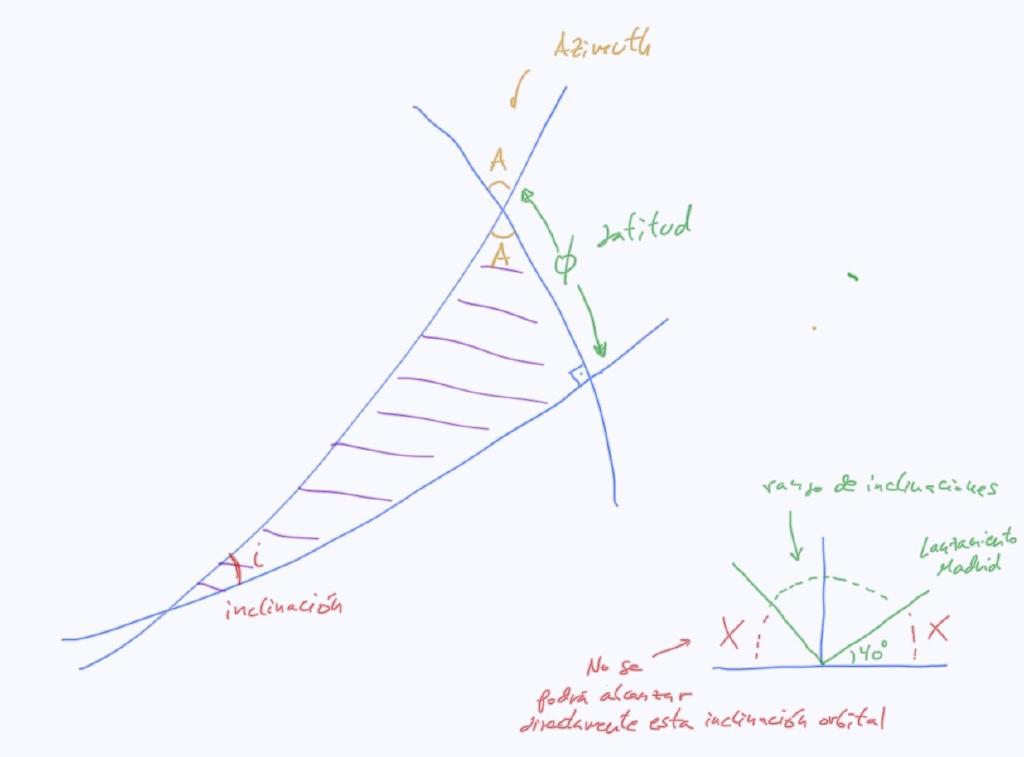 Azimuth
A
A
latitud
ϕ
i
inclinación
rango de inclinaciones
Lanzamiento
Madrid
X
X
40°
No se
podrá alcanzar
directamente esta inclinación orbital